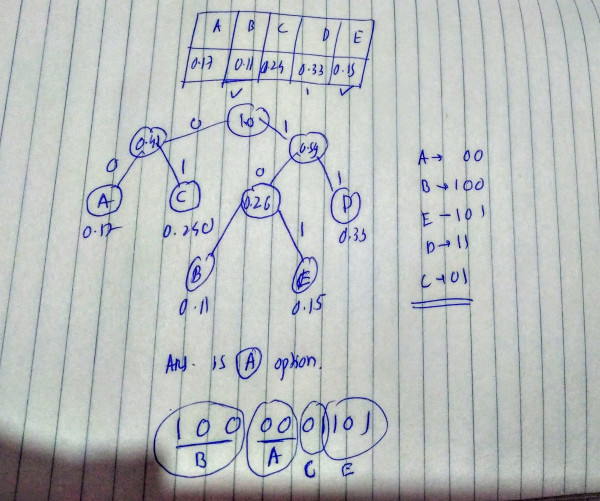 A B C D E
0.17 0.11 0.24 0.33 0.15
0 1.0 1
0.41 0.59
0 1 0 1
A C 0.26 D
0.17 0.240 0.33
1
B E
0.11 0.15
A → 00
B → 100
E - 101
D → 11
C → 01
Ans. is A option.
1 0 0 0 0 0 1 1 0 1
B A C E